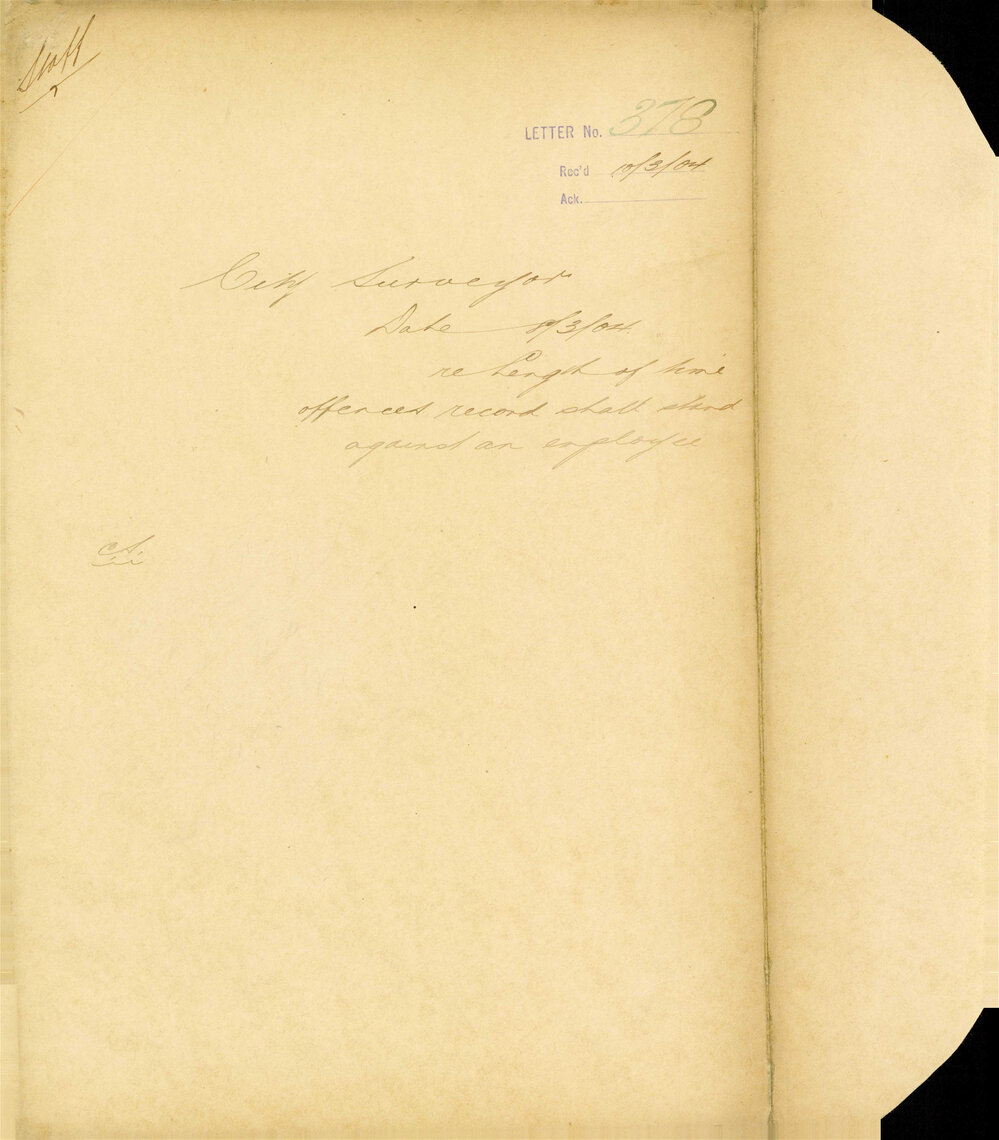 Staff
LETTER No. 378
Rec'd 10/3/04
Ack.
City Surveyor
Date 8/3/04
re Length of time
offences record shall stand
against an employee